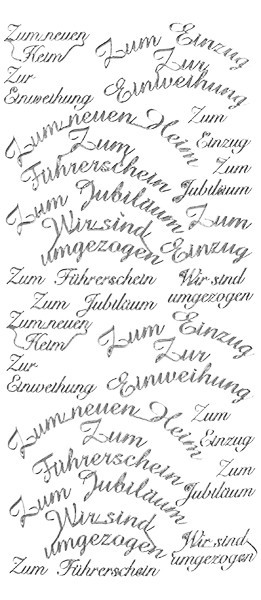 Zum neuen
Heim
Zum Einzug
Zur
Einweihung
Zur
Einweihung
Zum neuen Heim
Zum
Einzug
Zum
Führerschein
Zum
Jubiläum
Zum Jubiläum
Zum
Einzug
Wir sind
umgezogen
Zum Führerschein
Wir sind
umgezogen
Zum Jubiläum
Zum neuen
Heim
Zum Einzug
Zur
Einweihung
Zur
Einweihung
Zum neuen Heim
Zum
Einzug
Zum
Führerschein
Zum
Jubiläum
Zum Jubiläum
Wir sind
umgezogen
Wir sind
umgezogen
Zum Führerschein